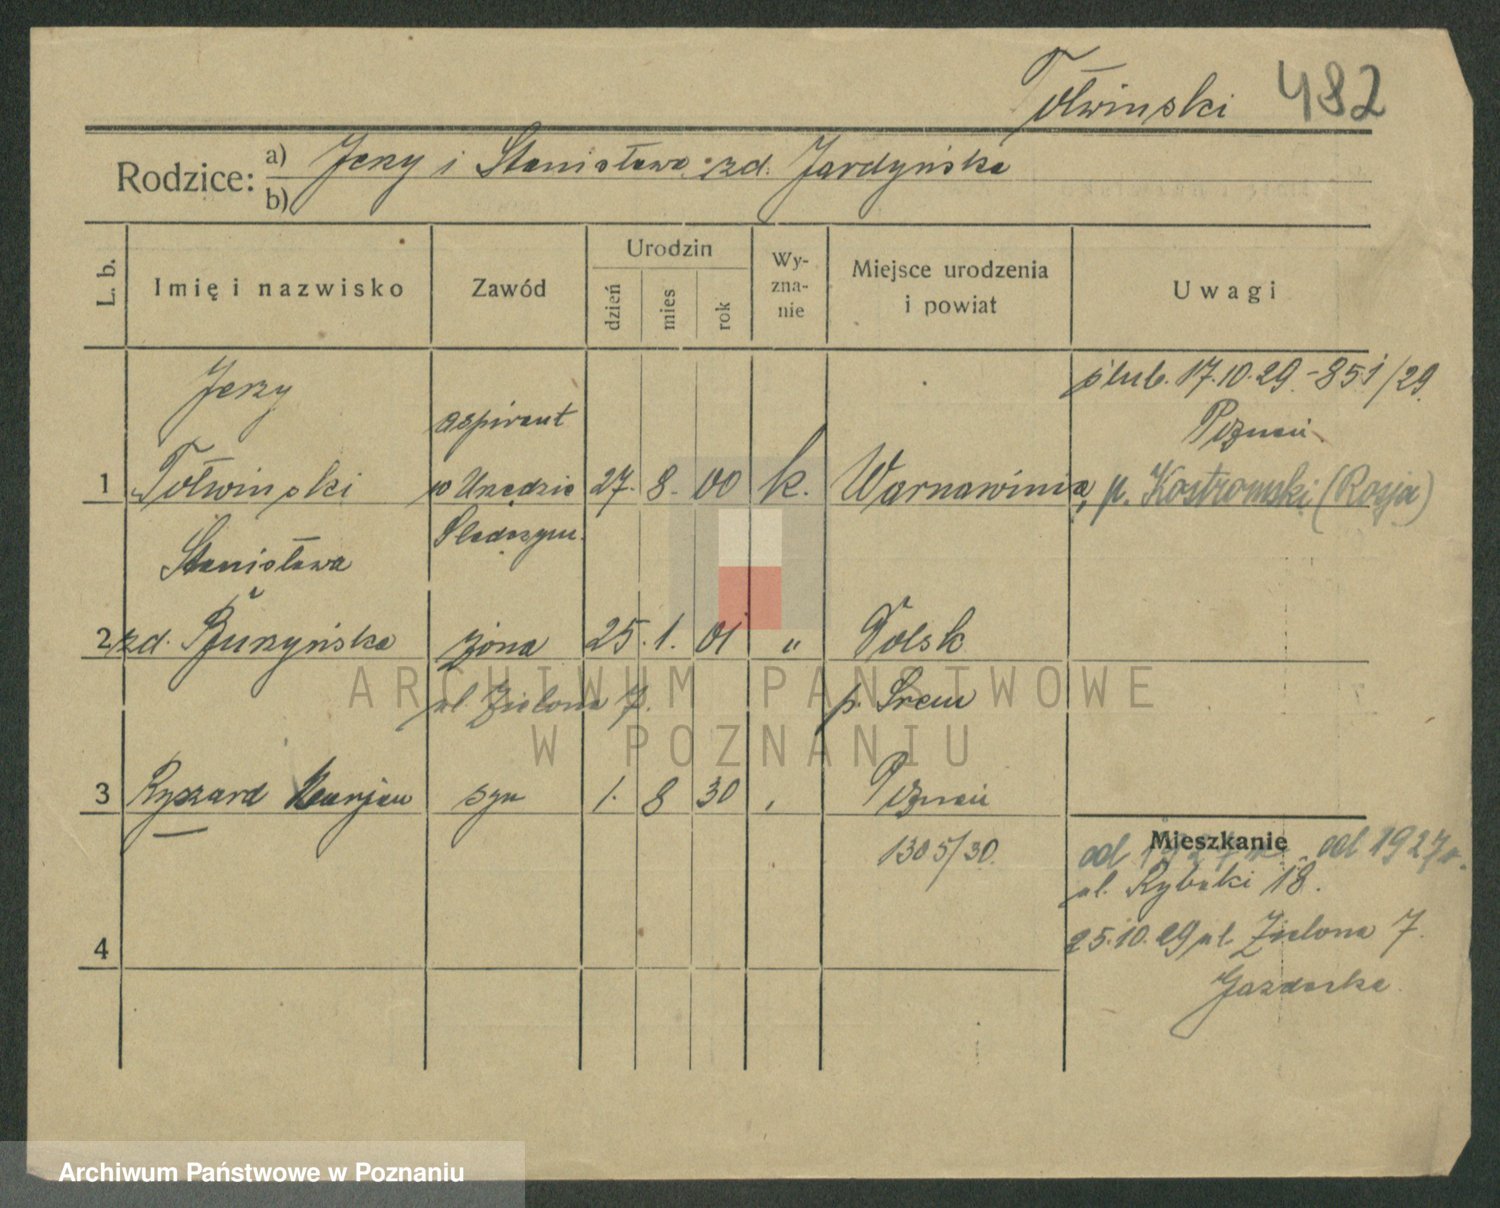 Tołwinski 482
Rodzice: a) Jerzy i Stanisława zd. Jardyńska
b)
L. b. Imię i nazwisko Zawód Urodzin dzień mies rok Wy-zna-nie Miejsce urodzenia i powiat Uwagi
ślub. 17.10.29 - 851/29.
Poznań
Jerzy aspirant
1 Tołwinski w Urzędzie 27. 8. 00 k. Warnawinia, p. Kostromski (Rosja)
Śledczym.
Stanisława
2 zd. Burzyńska żona 25. 1. 01 " Dolsk
ul. Zielona 7. p. Śrem
3 Ryszard Marjan syn 1. 8 30 Poznań
1305/30.
Mieszkanie
od 1927 r. od 1927 r.
ul. Rybaki 18.
4
25.10.29 ul. Zielona 7.
ARCHIWUM PAŃSTWOWE
W POZNANIU
Archiwum Państwowe w Poznaniu